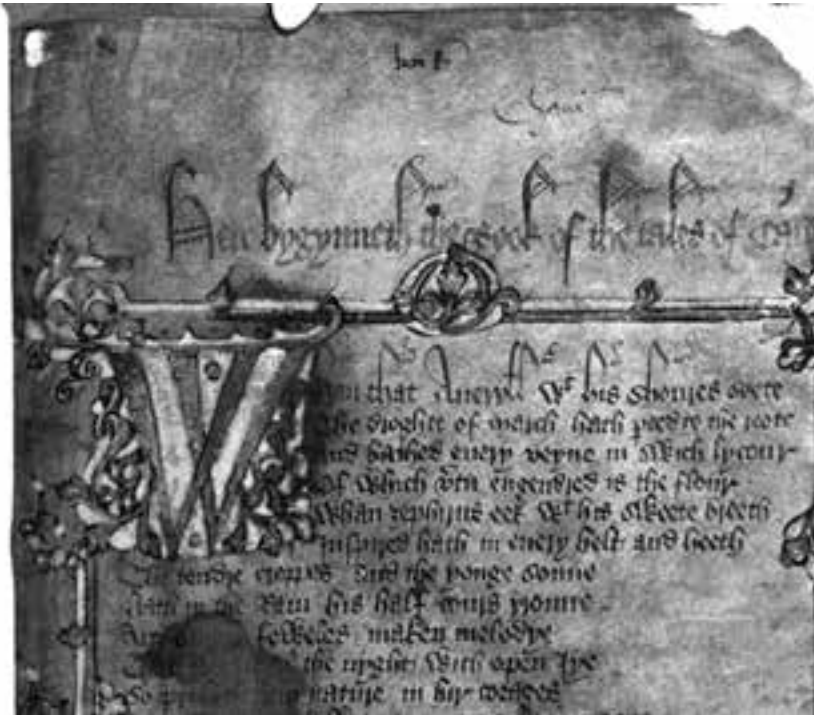 Here bygynneth the Book of the tales of Caun
Whan that Aueryll wt his shoures soote
The droghte of March hath perced to the roote
And bathed euery veyne in swich lycour
Of which vtu engendred is the flour
Whan zephirus eek wt his sweete breeth
Inspired hath in euery holt and heeth
The tendre croppes and the yonge sonne
Hath in the Ram his half cours yronne
And foweles maken melodye
the nyght with open Iye
So nature in hir corages